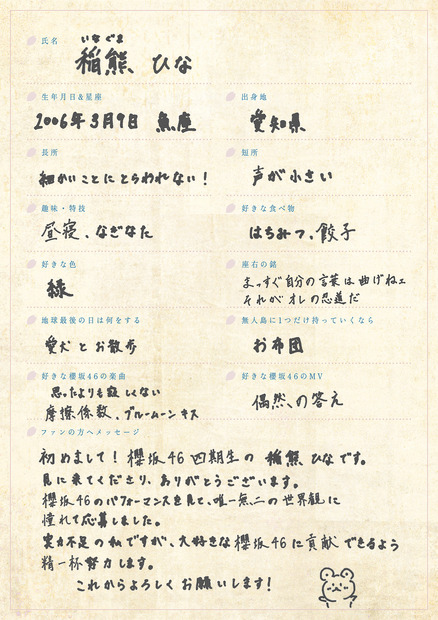 氏名
いなぐま
稲熊 ひな
生年月日&星座
2006年3月9日 魚座
出身地
愛知県
長所
細かいことにとらわれない!
短所
声が小さい
趣味・特技
昼寝、なぎなた
好きな食べ物
はちみつ、餃子
好きな色
緑
座右の銘
まっすぐ自分の言葉は曲げねェ
それがオレの忍道だ
地球最後の日は何をする
愛犬とお散歩
無人島に1つだけ持っていくなら
お布団
好きな櫻坂46の楽曲
思ったよりも寂しくない
摩擦係数、ブルームーンキス
好きな櫻坂46のMV
偶然の答え
ファンの方へメッセージ
初めまして! 櫻坂46四期生の 稲熊 ひなです。
見に来てくださり、ありがとうございます。
櫻坂46のパフォーマンスを見て、唯一無二の世界観に
憧れて応募しました。
実力不足の私ですが、大好きな櫻坂46に貢献できるよう
精一杯努力します。
これからよろしくお願いします!